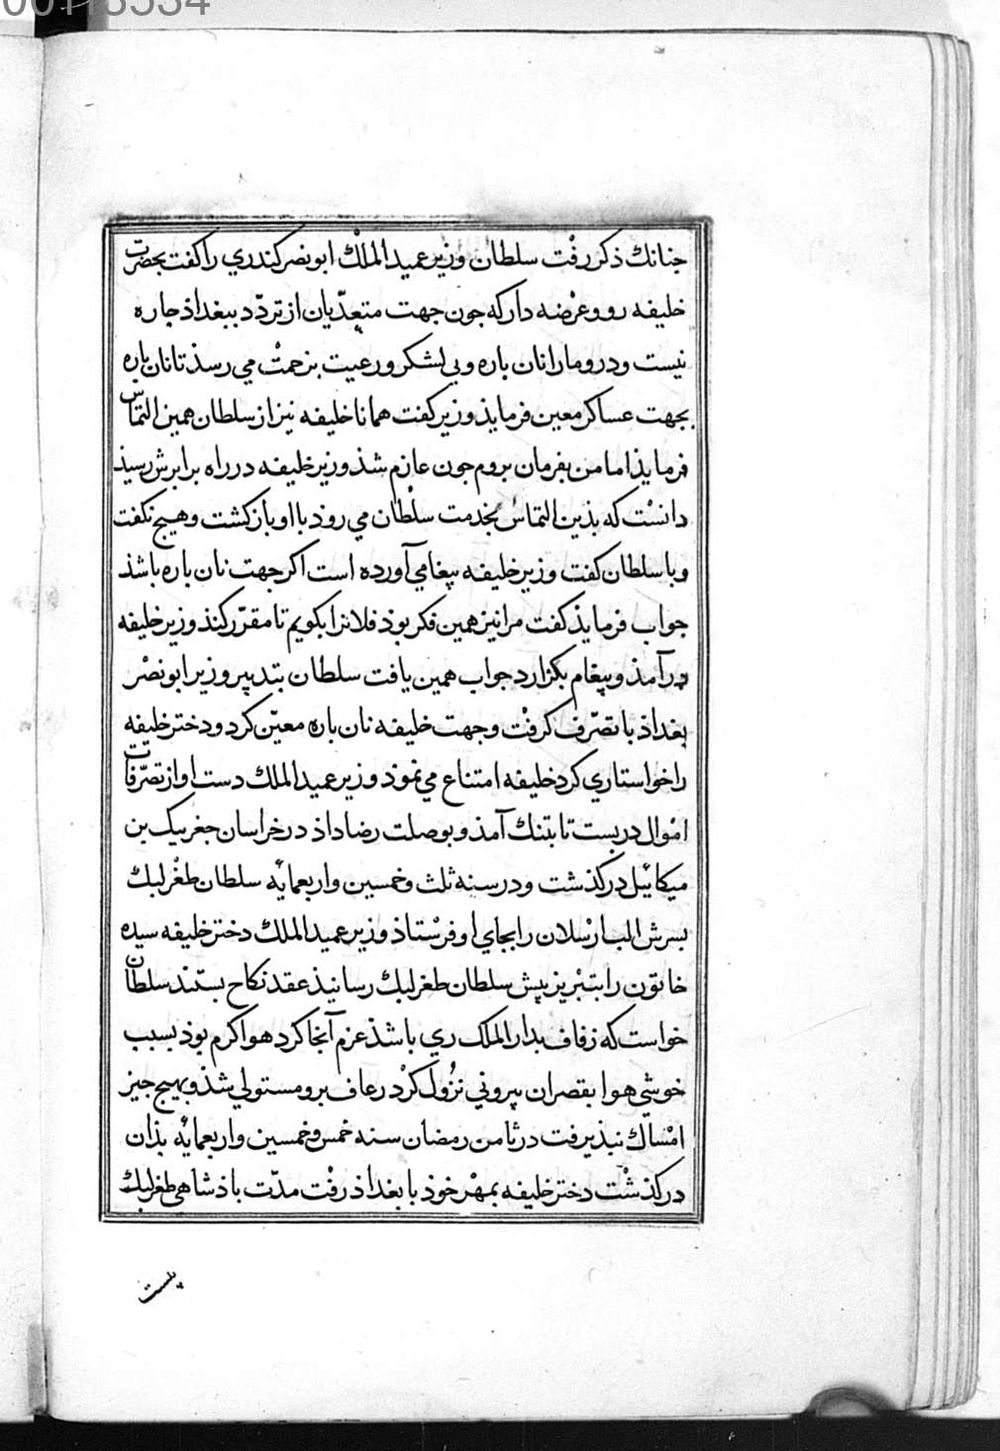 00118534
جنانك ذكر رفت سلطان وزير عميد الملك ابو نصر كندري را كفت بحضرت
خليفه رو و عرضه دار كه جون جهت متعدّيان از تردّد ببغداذ جاره
نيست و درو ما را نان باره و بي لشكر و رعيت بزحمت مي رسذ تا نان باره
بجهت عساكر معين فرمايذ وزير كفت همانا خليفه نيز از سلطان همين التماس
فرمايذ اما من بفرمان بروم جون عازم شذ وزير خليفه در راه برابرش رسيذ
دانست كه بذين التماس بخدمت سلطان مي روذ با او باز كشت و هيج نكفت
و با سلطان كفت وزير خليفه پيغامي آورده است اكر جهت نان باره باشذ
جواب فرمايذ كفت مرا نيز همين فكر بوذ فلانرا بكويم تا مقرّر كند وزير خليفه
در آمذ و پيغام بكزارد جواب همين يافت سلطان بتدبير وزير ابو نصر
بغداذ با تصرّف كرفت و جهت خليفه نان باره معيّن كرد و دختر خليفه
را خواستاري كرد خليفه امتناع مي نموذ وزير عميد الملك دست او از تصرّفات
اموال در بست تا بتنك آمذ و بوصلت رضا داذ در خراسان جغربيك بن
ميكائيل در كذشت و در سنه ثلث و خمسين و اربعمايه سلطان طغرلبك
بسرش الب ارسلان را بجاي او فرستاذ وزير عميد الملك دختر خليفه سيده
خاتون را بتبريز پيش سلطان طغرلبك رسانيذ عقد نكاح بستند سلطان
خواست كه زفاف بدار الملك ري باشذ عزم آنجا كرد هوا كرم بوذ بسبب
خوشي هوا بقصران بيروني نزول كرد رعاف برو مستولي شذ و بهيج جيز
امساك نپذيرفت در ثامن رمضان سنه خمس و خمسين و اربعمايه بذان
در كذشت دختر خليفه بمهر خوذ با بغداذ رفت مدّت باذشاهي طغرلبك
بيست